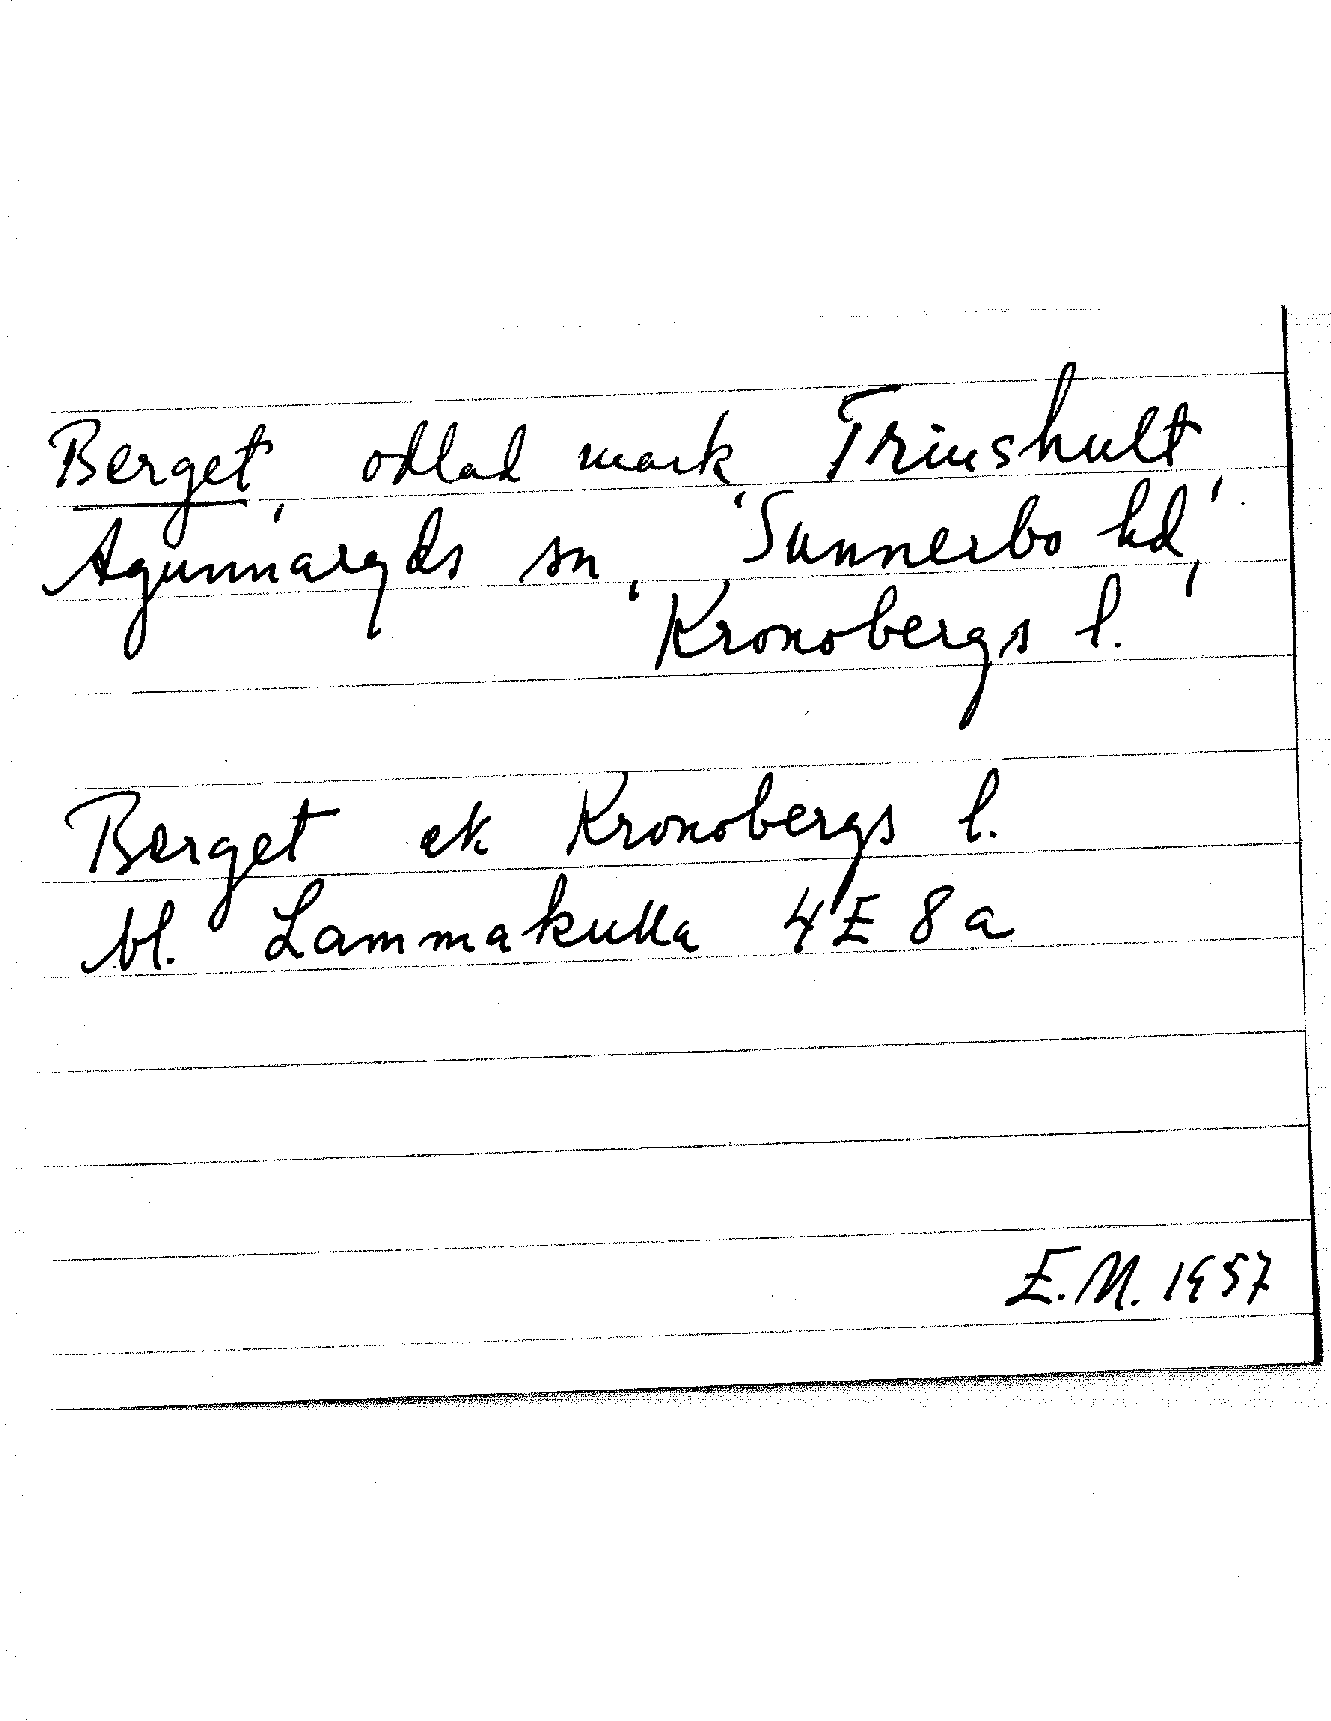 Berget, odlad mark, Trinshult,
Agunnaryds sn, Sunnerbo hd,
Kronobergs l.
Berget ek Kronobergs l.
bl. Lammakulla 4E 8a
E.M. 1957